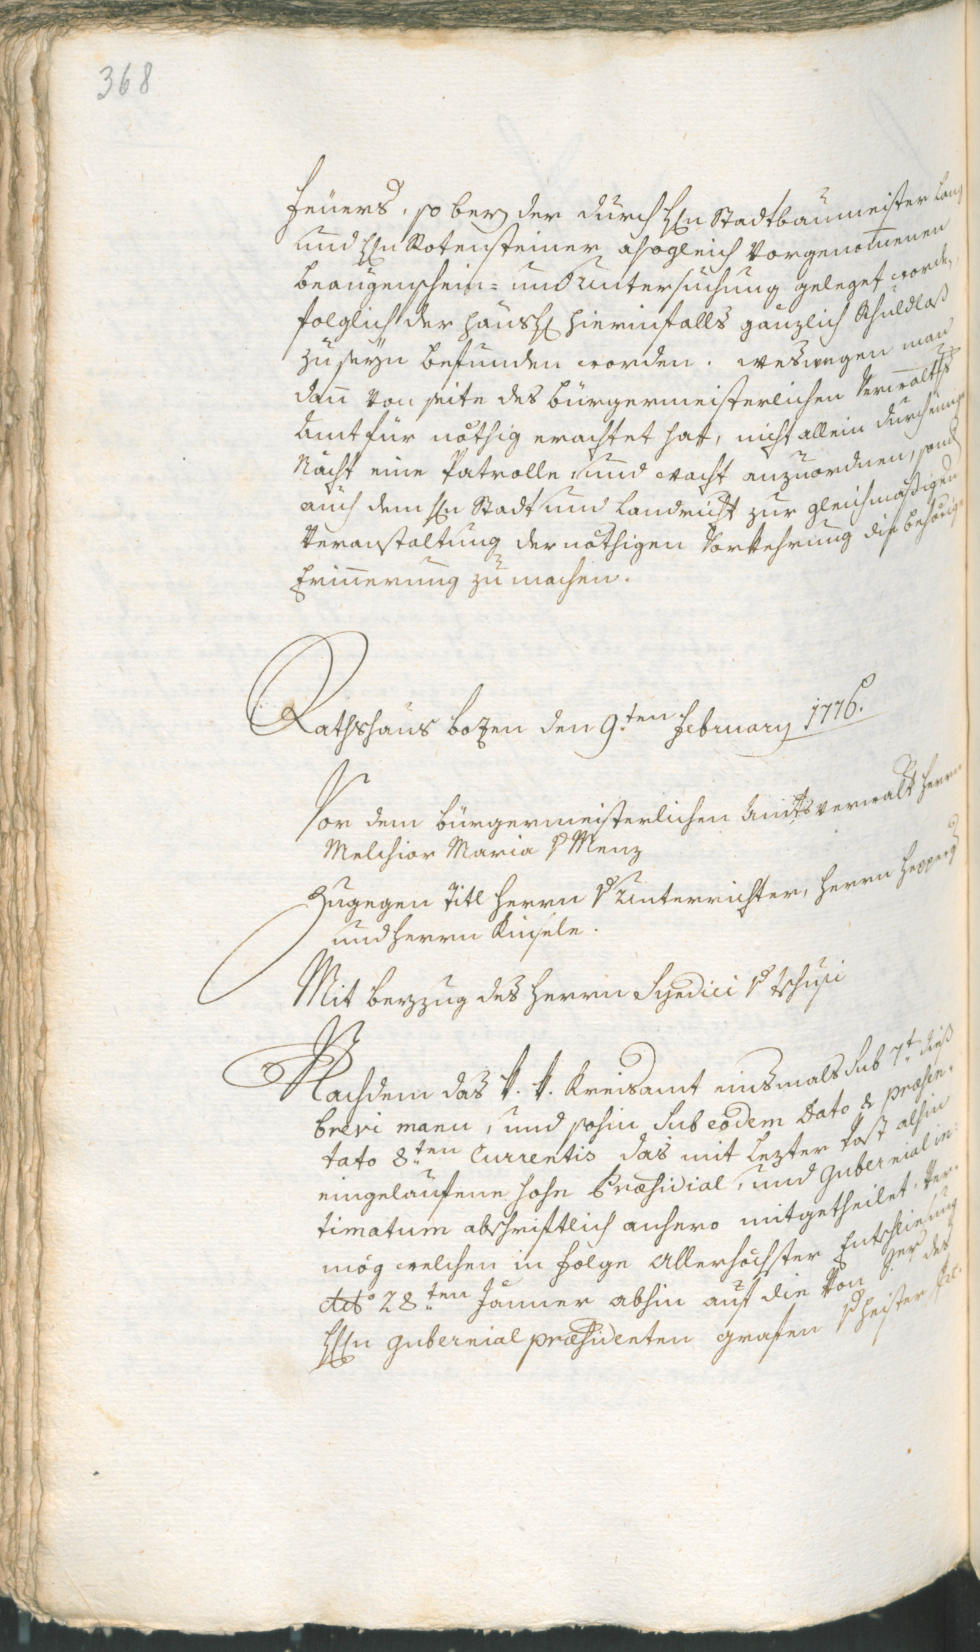 368
feüers, so bey der durch H̄n Stadtbaumeister Lang
und H̄n Rotensteiner alsogleich Vorgenom̄enen
beaugenschein- und Untersuchung geleget worde,
folglich der hausH̄ hierinfalls gänzlich schuldlos
zu seyn befunden worden. weswegen man
dañ von seite des bürgermeisterlichen Verwalt
Amt für nöthig erachtet hat, nicht allein durch einige
Nächt eine Patrolle, und wacht anzuordnen, sond
auch dem H̄n Stadt und Landricht zur gleichmäßigen
Veranstaltung der nöthigen Vorkehrung die behörige
Eriñerung zu machen.
Rathshaus bozen den 9.ten February 1776.
Vor dem bürgermeisterlichen Amtsverwalt Herrn
Melchior Maria v Menz
Zugegen Titl Herrn v Unterrichter, Herrn Hepperg
und Herrn Kinsele.
Mit beyzug des Herrn Syndici v Tschusi
Nachdem das k. k. Kreisamt einsmals sub 7.t dieß
brevi manu, und sohin sub eodem Dato & præsen-
tato 8.ten Currentis das mit lezter Post alhin
eingelaufene hohe Præsidial, und Gubernial in-
timatum abschriftlich anhero mitgetheilet. Ver-
mög welchen in folge Allerhöchster Entschliesung
ddto 28.ten Jänner abhin auf die von Sr des
H̄H̄n Gubernial præsidenten grafen v Heister